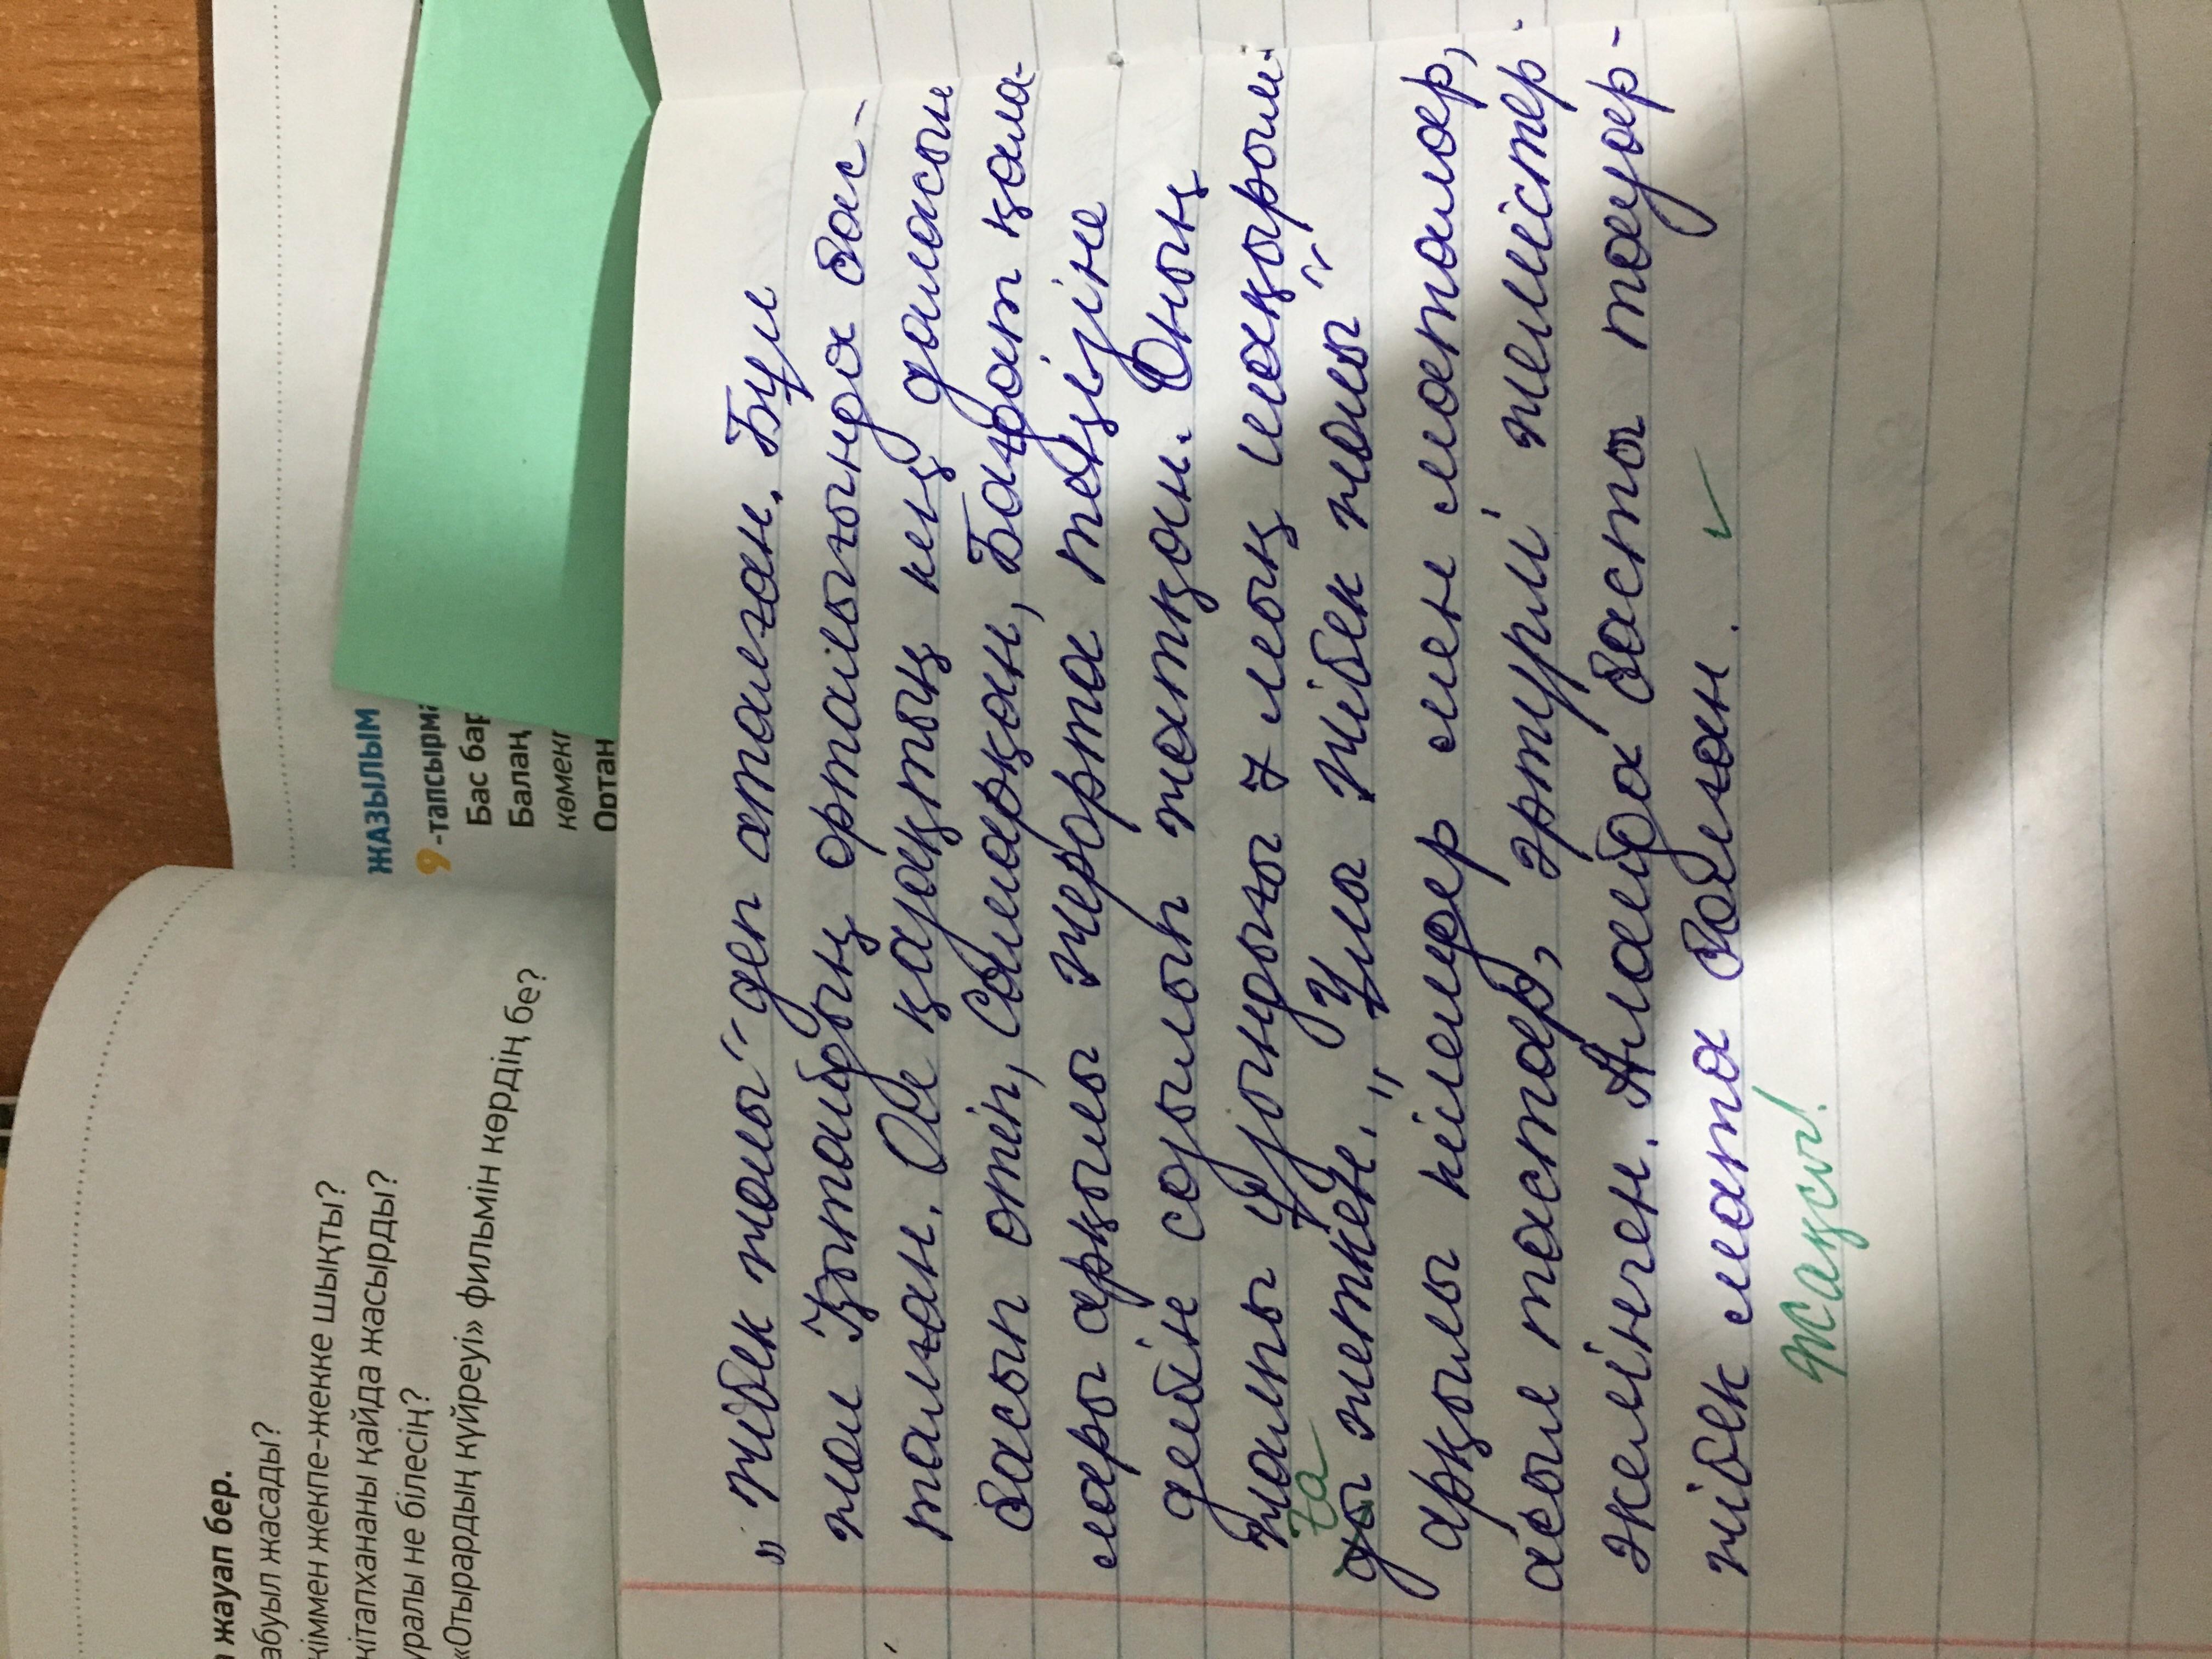 н жауап бер.
абуыл жасады?
кіммен жекпе-жекке шықты?
кітапхананы қайда жасырды?
уралы не білесің?
«Отырардың күйреуі» фильмін көрдің бе?
ЖАЗЫЛЫМ
9-тапсырма
Бас бар
Балаң
көмекг
Ортан
„Жібек жолы" деп аталған. Бұл
жол Қытайдың орталығында бас-
талған. Ол қазақтың кең даласын
басып өтіп, Самарқан, Бағдат қала-
лары арқылы жерорта теңізіне
дейін созылып жатқан. Оның
жалпы ұзындығы 7 мың шақырым-
ға
ды жеткен. „Ұлы Жібек жолы"
арқылы кілемдер мен маталар,
асыл тастар, әртүрлі жемістер
әкелінген. Алайда басты тауар-
жібек мата болған.
Жақсы!